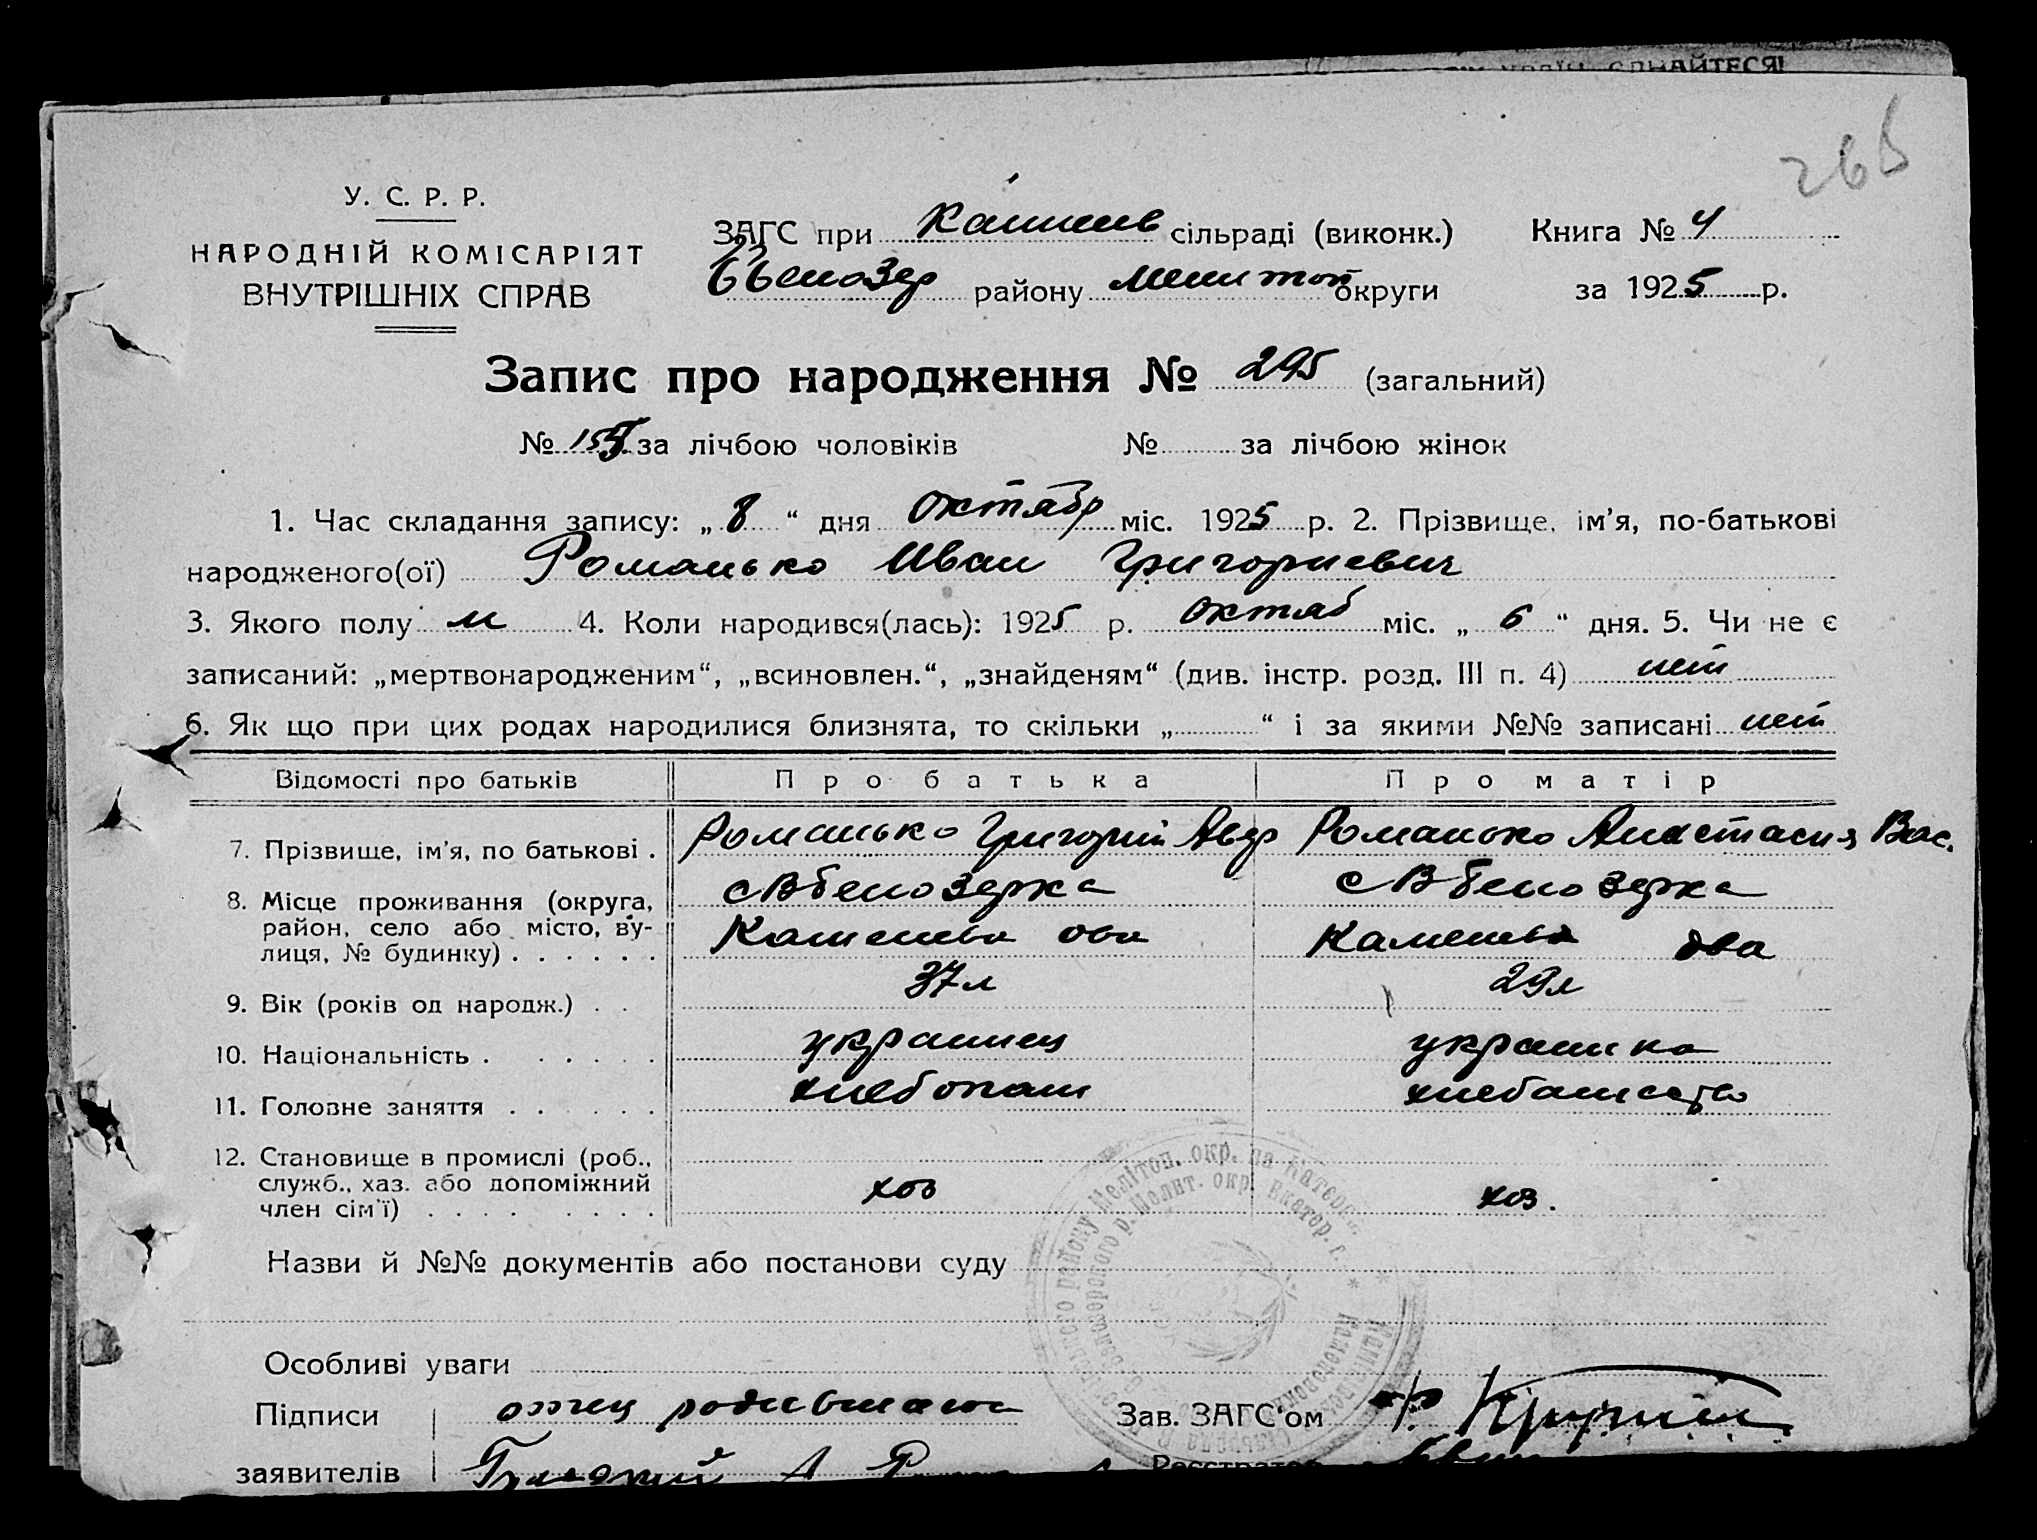 ЄДНАЙТЕСЯ!
265
У. С. Р. Р.
НАРОДНІЙ КОМІСАРІЯТ
ВНУТРІШНІХ СПРАВ
ЗАГС при Каменев сільраді (виконк.) Книга № 4
ВБелозер району Мелитоп округи за 1925 р.
Запис про народження № 295 (загальний)
№ 155 за лічбою чоловіків № за лічбою жінок
1. Час складання запису: „ 8 “ дня Октябр міс. 1925 р. 2. Прізвище, ім'я, по-батькові
народженого(ої) Романько Иван Григориевич
3. Якого полу м 4. Коли народився(лась): 1925 р. Октяб міс. „ 6 “ дня. 5. Чи не є
записаний: „мертвонародженим“, „всиновлен.“, „знайденям“ (див. інстр. розд. III п. 4) нет
6. Як що при цих родах народилися близнята, то скільки „ “ і за якими №№ записані нет
Відомості про батьків Про батька Про матір
7. Прізвище, ім'я, по батькові . Романько Григорий Романько Анастасия Вас.
8. Місце проживання (округа, район, село або місто, вулиця, № будинку) . . . . . . с ВБелозерка с ВБелозерка
Каменева Каменева
9. Вік (років од народж.) . . 37 л 29 л
10. Національність . . . . . . украинец украинка
11. Головне заняття . . . . . . хлебопаш
12. Становище в промислі (роб., служб., хаз. або допоміжний член сім'ї) . . . . . . . хоз хоз.
Назви й №№ документів або постанови суду
Особливі уваги
Підписи отец Зав. ЗАГС'ом
заявителів Реєстратор